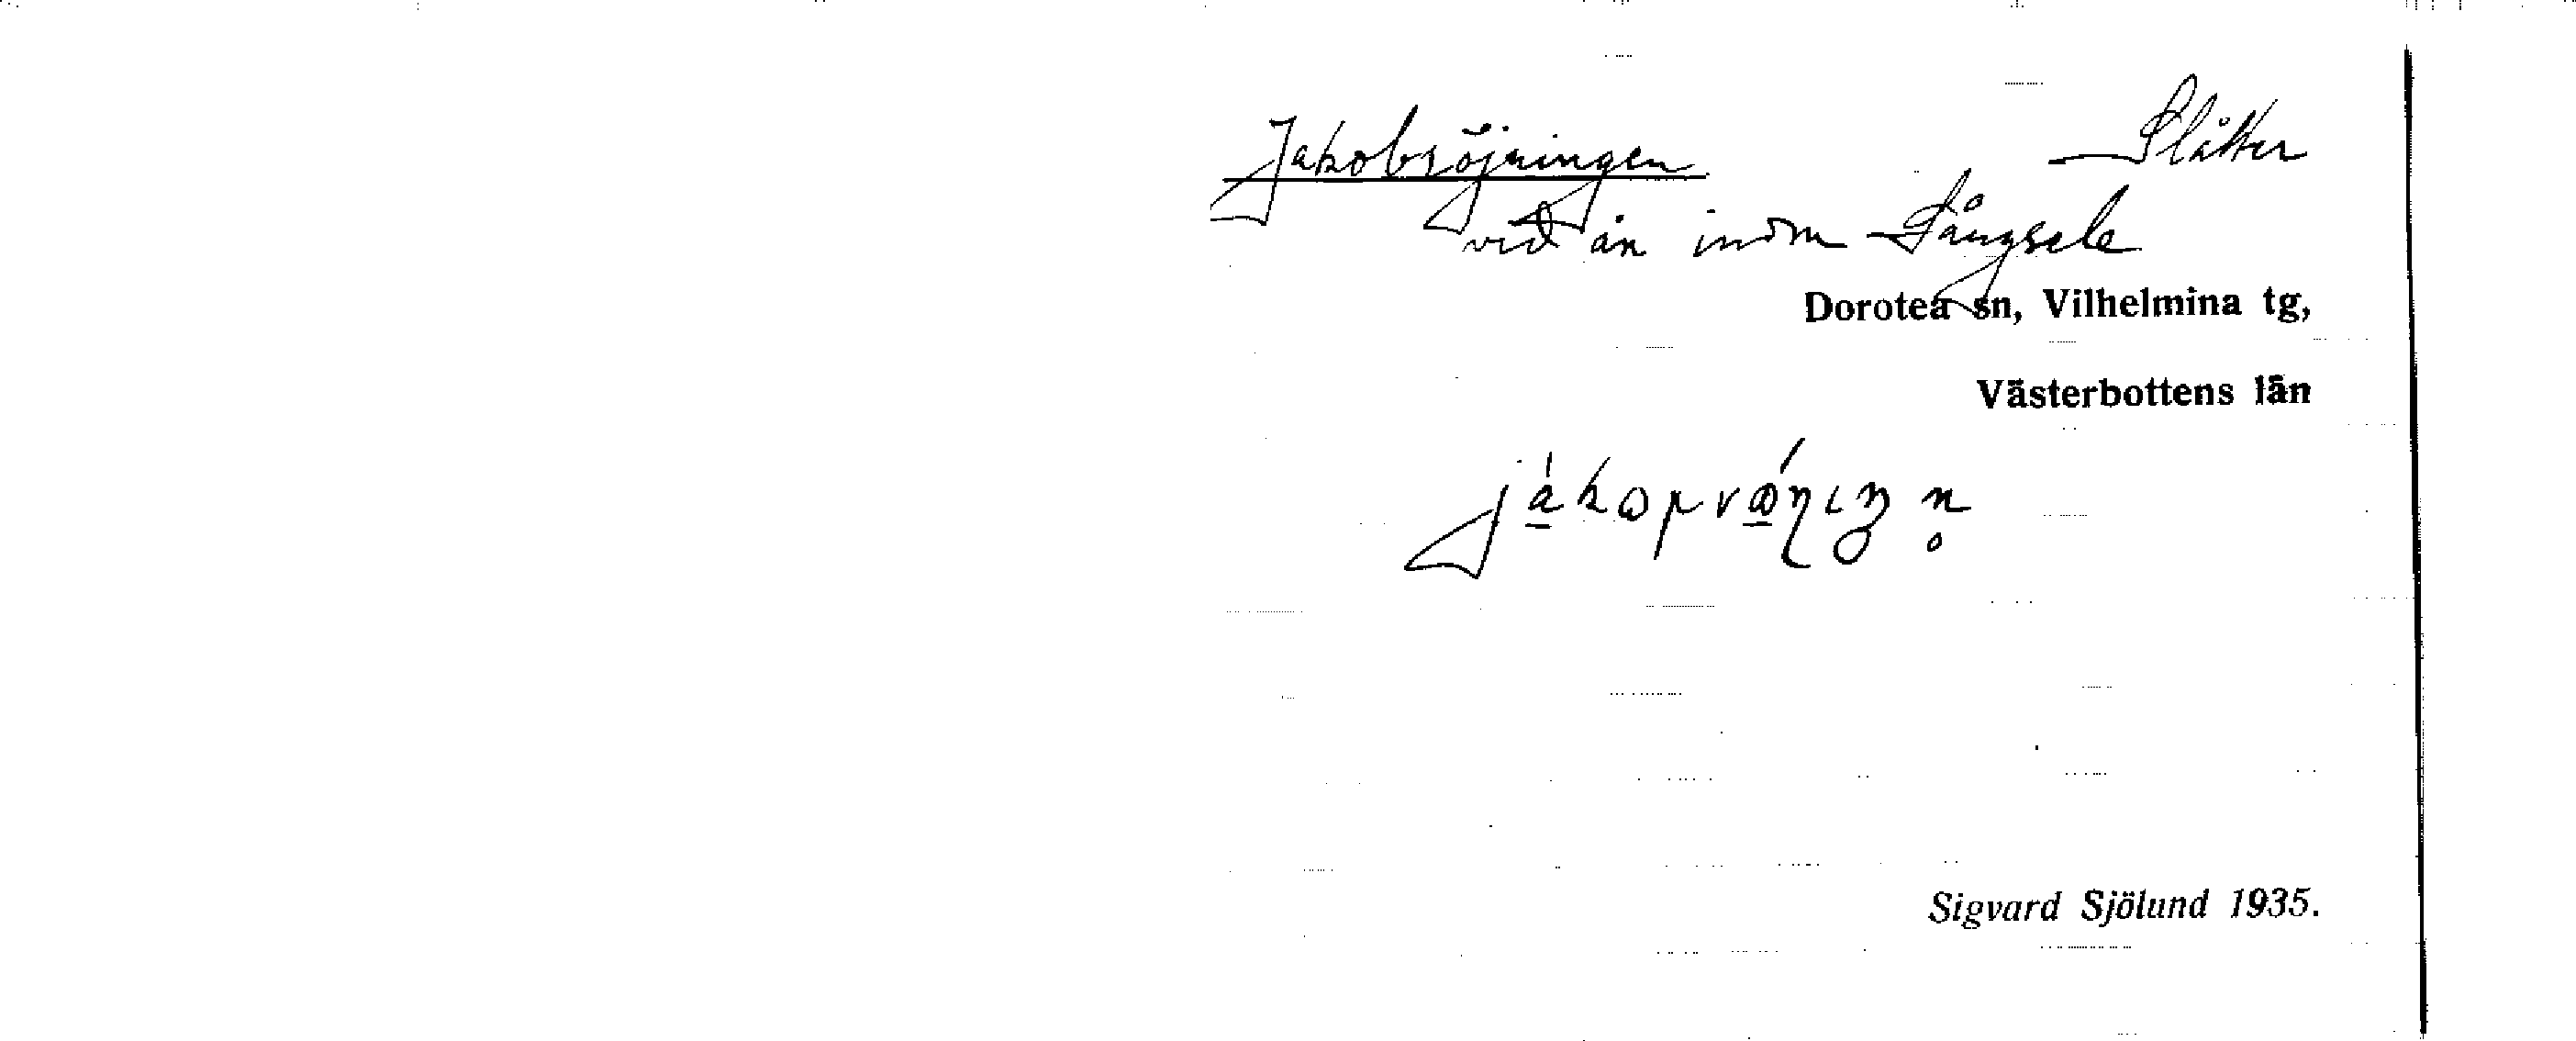 Jakobsröjningen Slåtter
vid ån inom Långsele
Dorotea sn, Vilhelmina tg,
Västerbottens län
Sigvard Sjölund 1935.